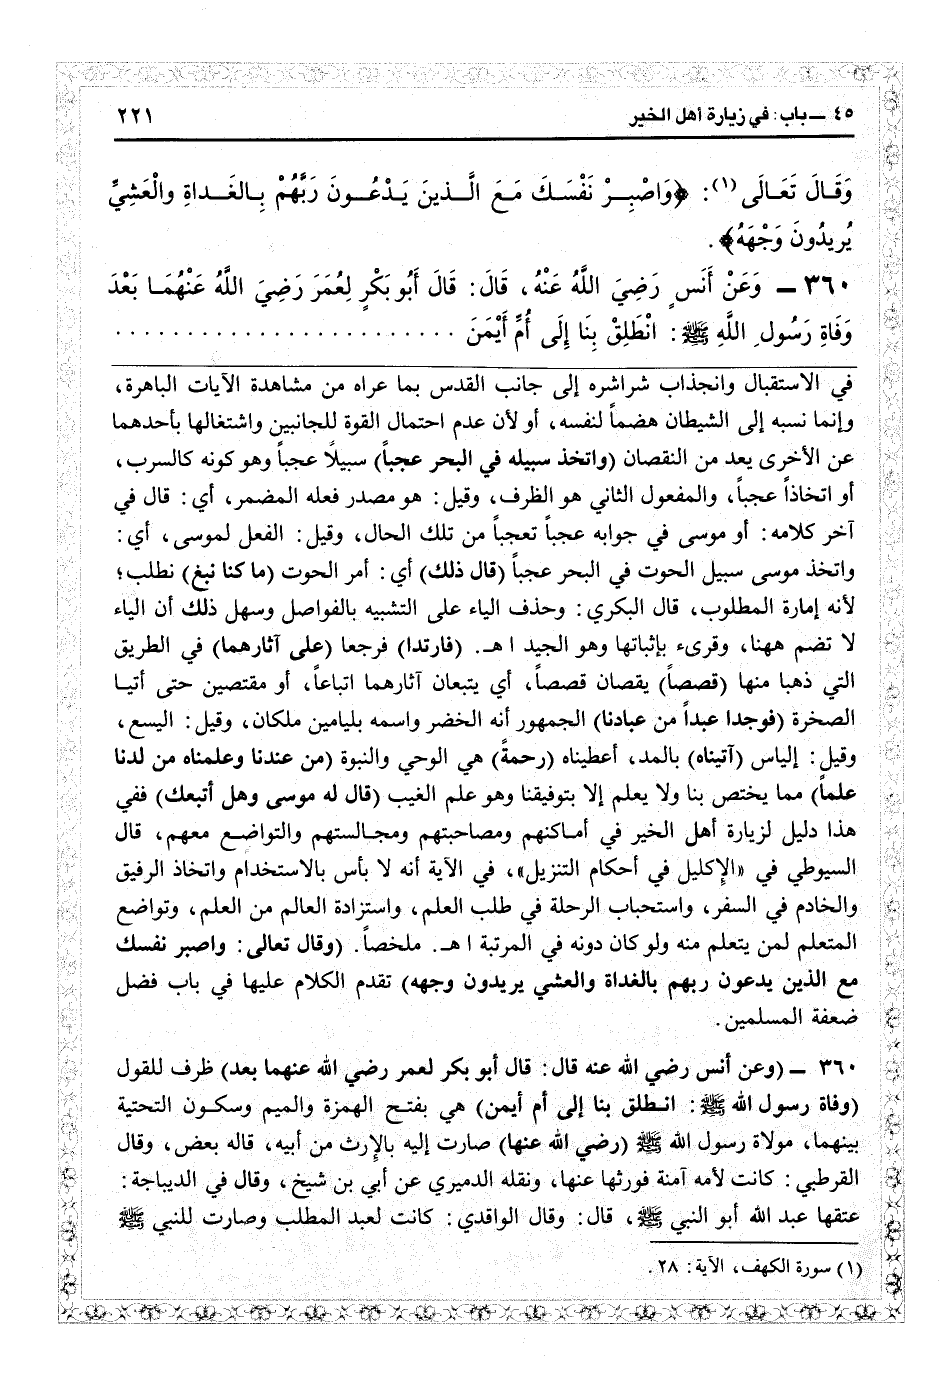 ٤٥ – باب: في زيارة أهل الخير ٢٢١
وَقَالَ تَعَالَى(١): ﴿وَاصْبِرْ نَفْسَكَ مَعَ الَّذِينَ يَدْعُونَ رَبَّهُمْ بِالغَداةِ والْعَشِيِّ
يُرِيدُونَ وَجْهَهُ﴾.
٣٦٠ – وَعَنْ أَنَسٍ رَضِيَ اللَّهُ عَنْهُ، قَالَ: قَالَ أَبُو بَكْرٍ لِعُمَرَ رَضِيَ اللَّهُ عَنْهُمَا بَعْدَ
وَفَاةِ رَسُولِ اللَّهِ ﷺ: انْطَلِقْ بِنَا إِلَى أُمِّ أَيْمَنَ . . . . . . . . . . . . . . . . . . . . . . . .
في الاستقبال وانجذاب شراشره إلى جانب القدس بما عراه من مشاهدة الآيات الباهرة،
وإنما نسبه إلى الشيطان هضماً لنفسه، أو لأن عدم احتمال القوة للجانبين واشتغالها بأحدهما
عن الأخرى يعد من النقصان (واتخذ سبيله في البحر عجباً) سبيلاً عجباً وهو كونه كالسرب،
أو اتخاذاً عجباً، والمفعول الثاني هو الظرف، وقيل: هو مصدر فعله المضمر، أي: قال في
آخر كلامه: أو موسى في جوابه عجباً تعجباً من تلك الحال، وقيل: الفعل لموسى، أي:
واتخذ موسى سبيل الحوت في البحر عجباً (قال ذلك) أي: أمر الحوت (ما كنا نبغ) نطلب؛
لأنه إمارة المطلوب، قال البكري: وحذف الياء على التشبيه بالفواصل وسهل ذلك أن الياء
لا تضم ههنا، وقرىء بإثباتها وهو الجيد ا هـ. (فارتدا) فرجعا (على آثارهما) في الطريق
التي ذهبا منها (قصصاً) يقصان قصصاً، أي يتبعان آثارهما اتباعاً، أو مقتصين حتى أتيا
الصخرة (فوجدا عبداً من عبادنا) الجمهور أنه الخضر واسمه بليامين ملكان، وقيل: اليسع،
وقيل: إلياس (آتيناه) بالمد، أعطيناه (رحمة) هي الوحي والنبوة (من عندنا وعلمناه من لدنا
علماً) مما يختص بنا ولا يعلم إلا بتوفيقنا وهو علم الغيب (قال له موسى وهل أتبعك) ففي
هذا دليل لزيارة أهل الخير في أماكنهم ومصاحبتهم ومجالستهم والتواضع معهم، قال
السيوطي في «الإكليل في أحكام التنزيل»، في الآية أنه لا بأس بالاستخدام واتخاذ الرفيق
والخادم في السفر، واستحباب الرحلة في طلب العلم، واستزادة العالم من العلم، وتواضع
المتعلم لمن يتعلم منه ولو كان دونه في المرتبة ا هـ. ملخصاً. (وقال تعالى: واصبر نفسك
مع الذين يدعون ربهم بالغداة والعشي يريدون وجهه) تقدم الكلام عليها في باب فضل
ضعفة المسلمين.
٣٦٠ – (وعن أنس رضي الله عنه قال: قال أبو بكر لعمر رضي الله عنهما بعد) ظرف للقول
(وفاة رسول الله ﷺ: انطلق بنا إلى أم أيمن) هي بفتح الهمزة والميم وسكون التحتية
بينهما، مولاة رسول الله ﷺ (رضي الله عنها) صارت إليه بالإرث من أبيه، قاله بعض، وقال
القرطبي: كانت لأمه آمنة فورثها عنها، ونقله الدميري عن أبي بن شيخ، وقال في الديباجة:
عتقها عبد الله أبو النبي ﷺ، قال: وقال الواقدي: كانت لعبد المطلب وصارت للنبي ﷺ
(١) سورة الكهف، الآية: ٢٨.